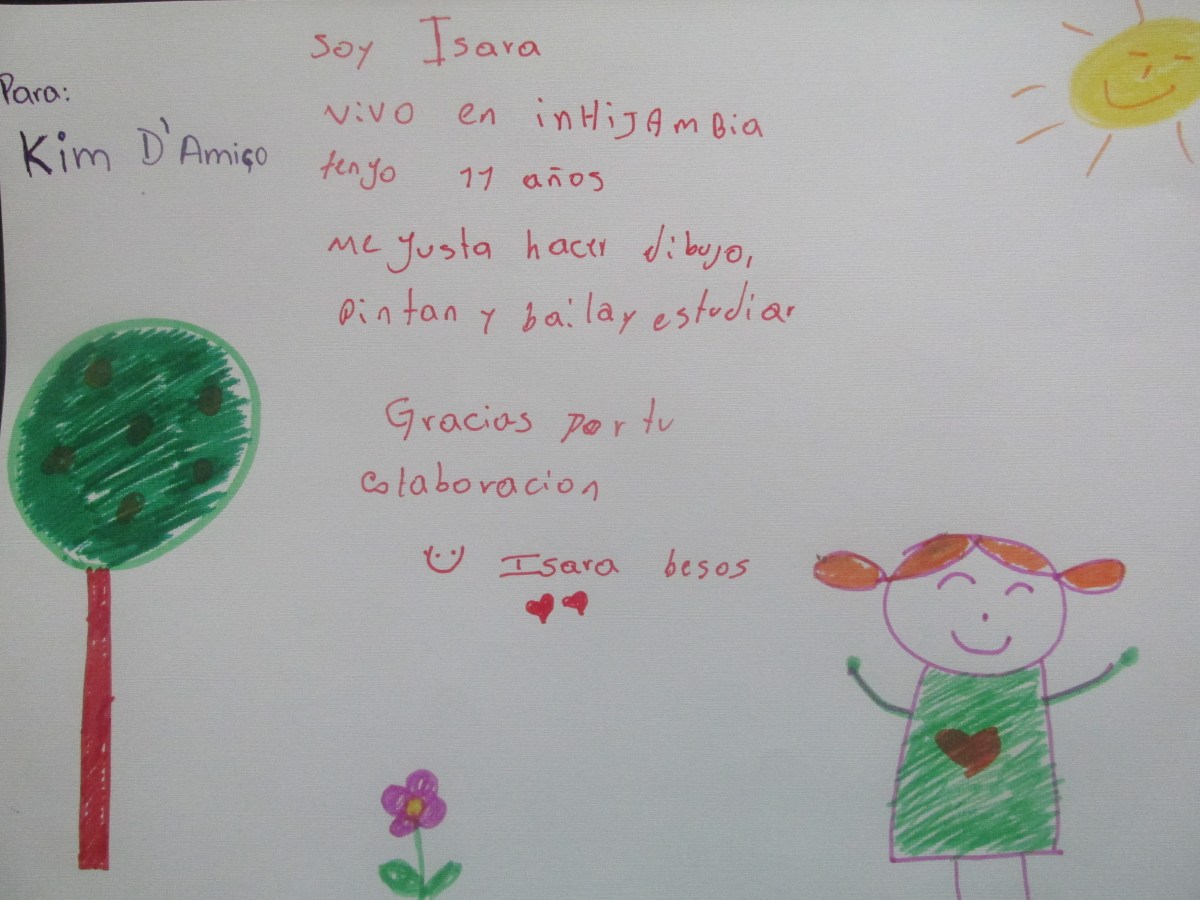 Para:
Kim D'Amico
Soy Isara
vivo en inHiJAmBia
tengo 11 años
me gusta hacer dibujo,
Pintan y bailay estudiar
Gracias por tu
colaboracion
Isara besos